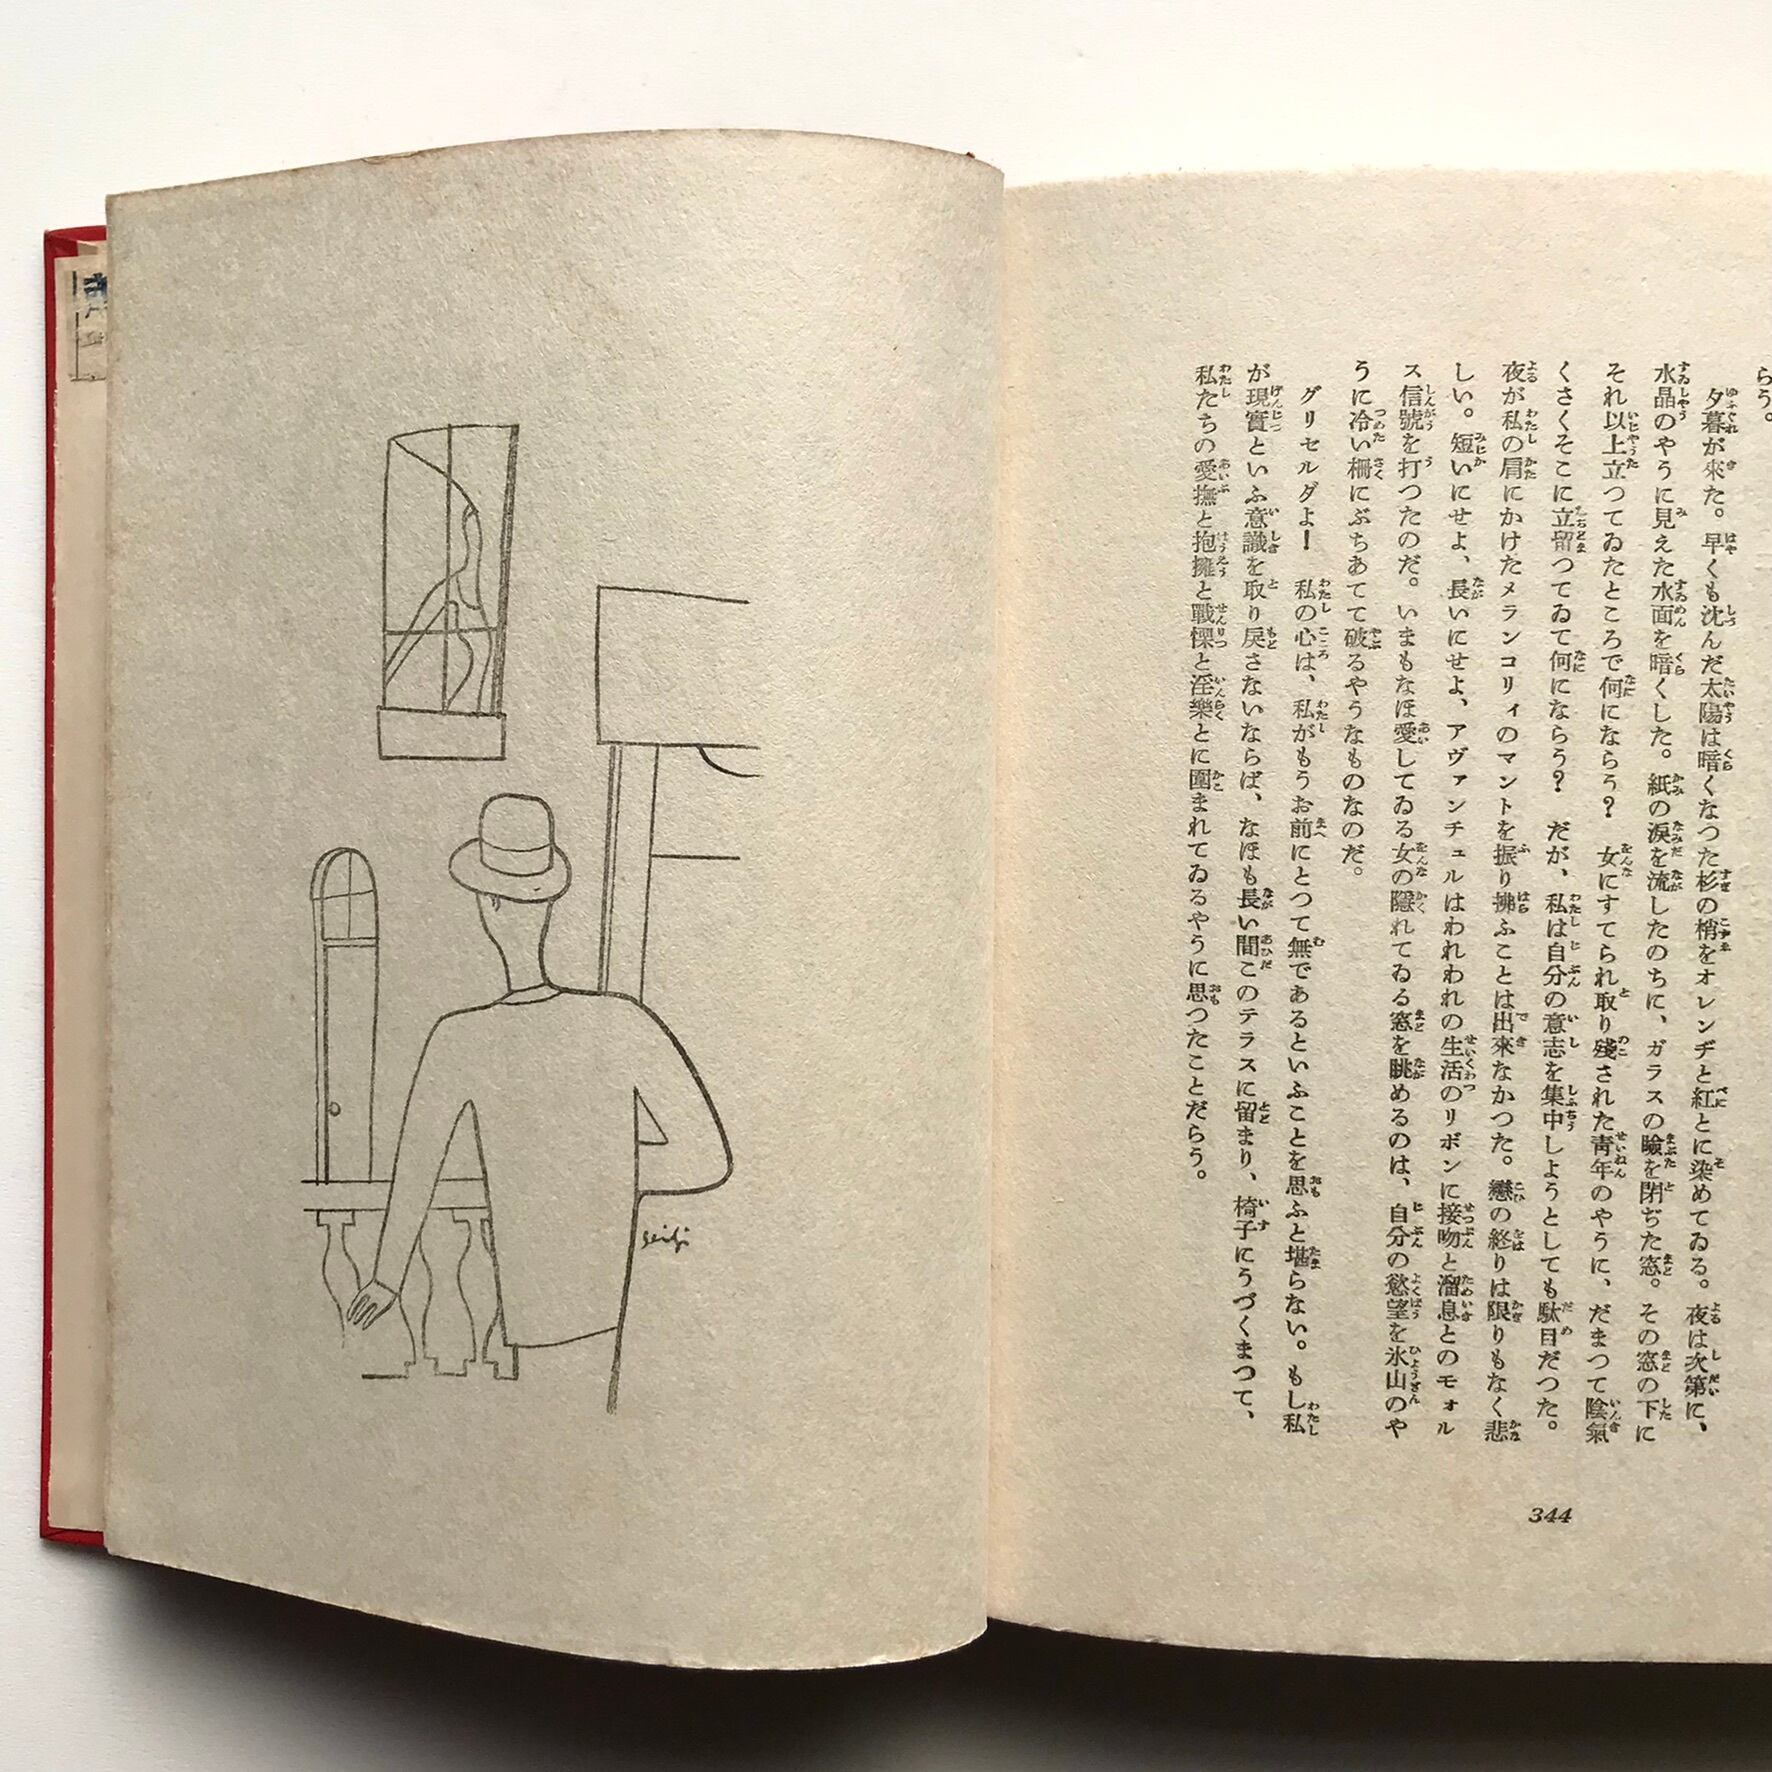 らう。
夕暮が來た。早くも沈んだ太陽は暗くなつた杉の梢をオレンヂと紅とに染めてゐる。夜は次第に、
水晶のやうに見えた水面を暗くした。紙の淚を流したのちに、ガラスの瞼を閉ぢた窓。その窓の下に
それ以上立つてゐたところで何にならう？　女にすてられ取り殘された靑年のやうに、だまつて陰氣
くさくそこに立留つてゐて何にならう？　だが、私は自分の意志を集中しようとしても駄目だつた。
夜が私の肩にかけたメランコリィのマントを振り拂ふことは出來なかつた。戀の終りは限りもなく悲
しい。短いにせよ、長いにせよ、アヴァンチュルはわれわれの生活のリボンに接吻と溜息とのモォル
ス信號を打つたのだ。いまもなほ愛してゐる女の隱れてゐる窓を眺めるのは、自分の慾望を氷山のや
うに冷い柵にぶちあてて破るやうなものなのだ。
グリセルダよ！　私の心は、私がもうお前にとつて無であるといふことを思ふと堪らない。もし私
が現實といふ意識を取り戾さないならば、なほも長い間このテラスに留まり、椅子にうづくまつて、
私たちの愛撫と抱擁と戰慄と淫樂とに圍まれてゐるやうに思つたことだらう。
344
seiji